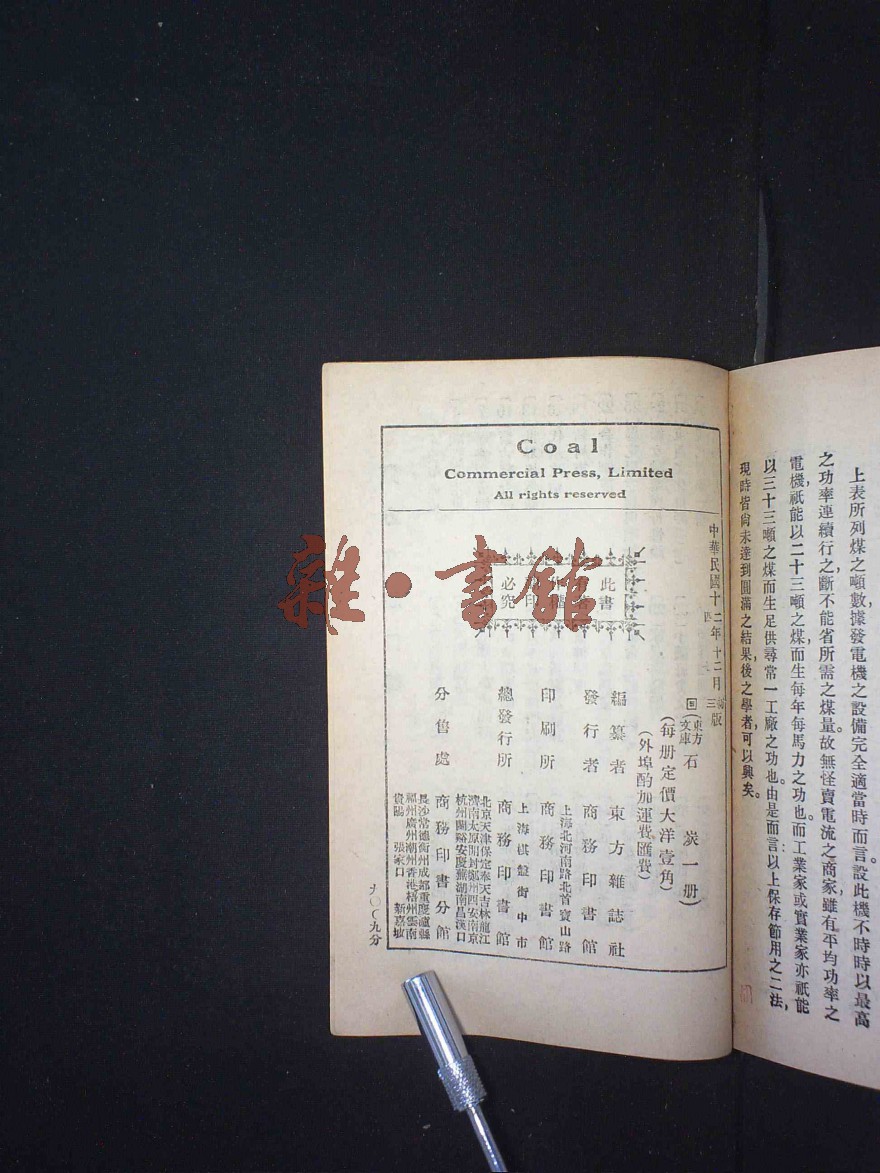 上表所列煤之噸數據發電機之設備完全適當時而言設此機不時時以最高
之功率連續行之斷不能省所需之煤量。故無怪賣電流之商家，雖有平均功率之
電機，祇能以二十三噸之煤而生每年每馬力之功也。而工業家或實業家亦祇能
以三十三噸之煤而生足供尋常一工廠之功也。由是而言以上保存節用之二法，
現時皆尚未達到圓滿之結果後之學者，可以興矣。
Coal
Commercial Press, Limited
All rights reserved
中華民國十二年十二月
四
三版
東方
文庫
石炭一册）
（每册定價大洋壹角）
（外埠酌加運費匯費）
此書
必究
編纂者 東方雜誌社
發行者 商務印書館
上海北河南路北首寶山路
印刷所 商務印書館
上海棋盤街中市
總發行所 商務印書館
北京天津保定奉天吉林龍江
濟南太原開封鄭州西安南京
杭州蘭谿安慶蕪湖南昌漢口
分售處 商務印書分館
長沙常德衡州成都重慶瀘縣
福州廣州潮州香港梧州雲南
貴陽 張家口 新嘉坡
九〇〇九分
雜·書館